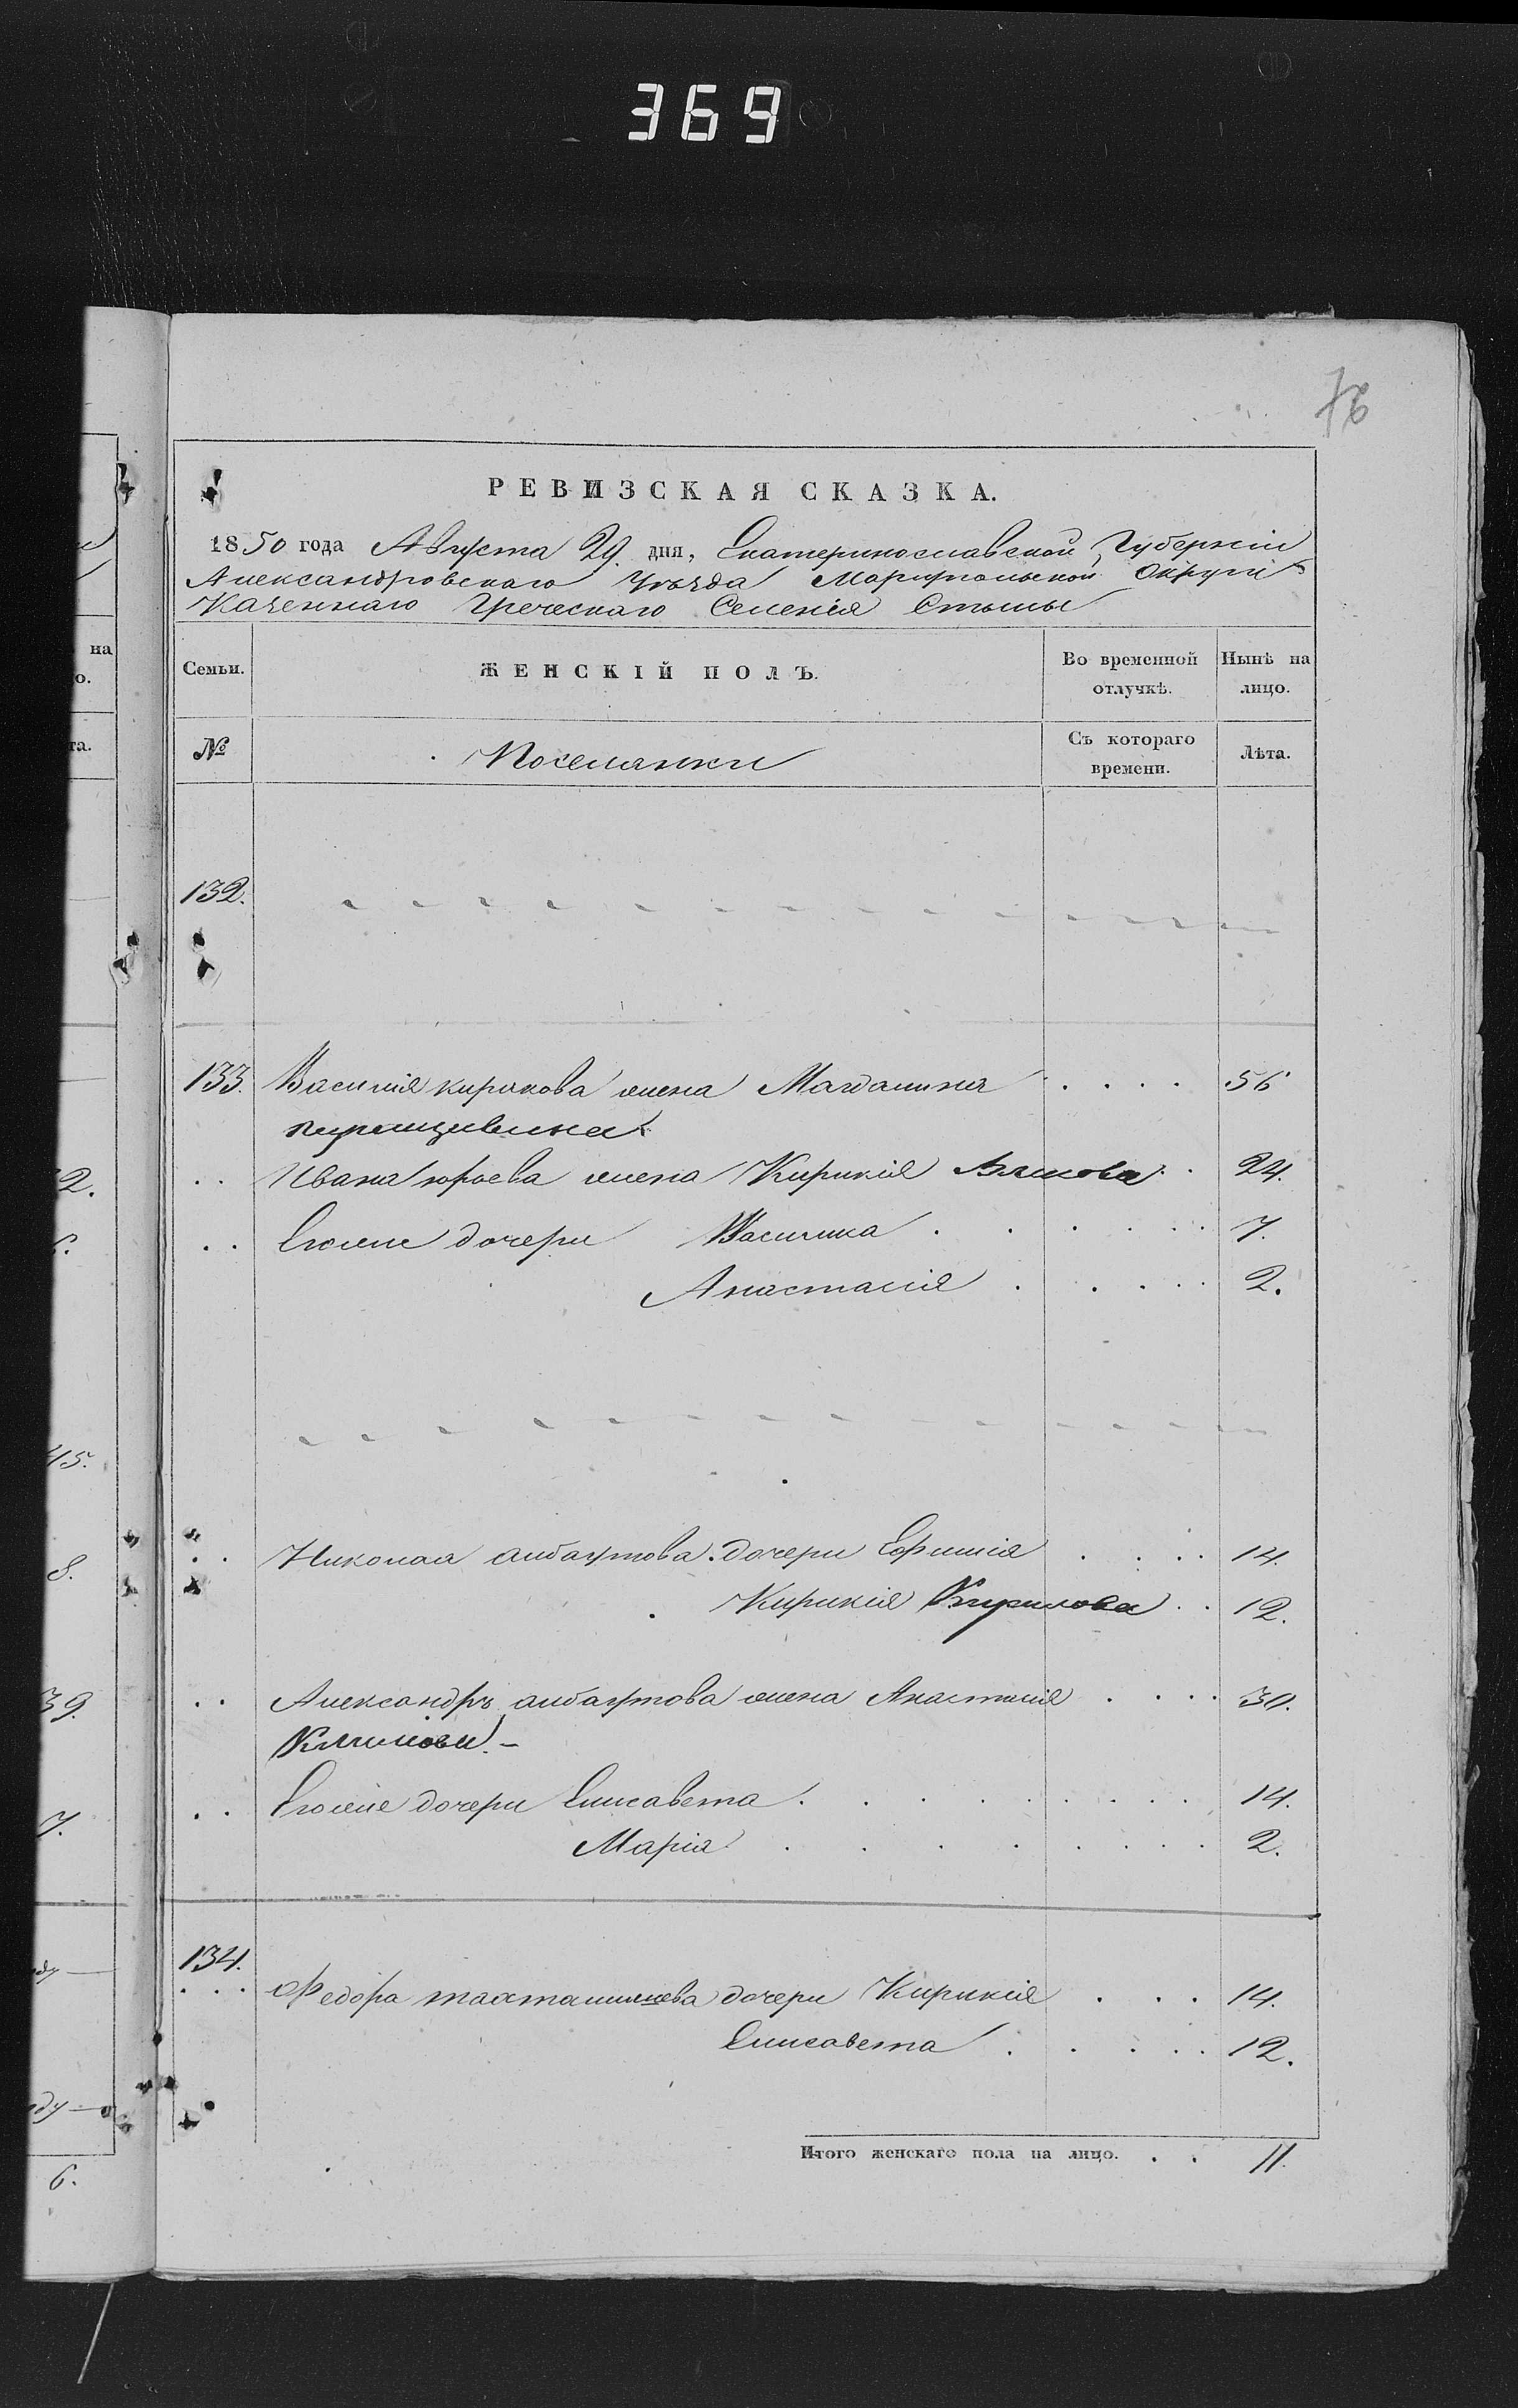 369
76
РЕВИЗСКАЯ СКАЗКА.
1850 года Августа 29. дня, Екатеринославской Губерніи
Александровскаго Уѣзда Маріупольской Округи
Казеннаго Греческаго Селенія Стылы
на
о.
та.
Семьи. ЖЕНСКІЙ ПОЛЪ. Во временной отлучкѣ. Нынѣ на лицо.
№ Поселянки Съ котораго времени. Лѣта.
132.
133. Василія кирякова жена Магдалина .... 56
.. Ивана юрьева жена Кирикія .. 24.
.. Егоже дочери Василика ...... 7.
Анастасія ..... 2.
.. Николая амбаутова дочери Ефимія .... 14.
Кирикія Кирилова .. 12.
.. Александръ амбаутова жена Анастасія .... 30.
.. Егоже дочери Елисавета ......... 14.
Марія ........ 2.
134.
... Федора дочери Кирикія ... 14.
Елисавета ..... 12.
Итого женскаго пола на лицо. .. 11.
2.
45.
8.
39.
7.
6.